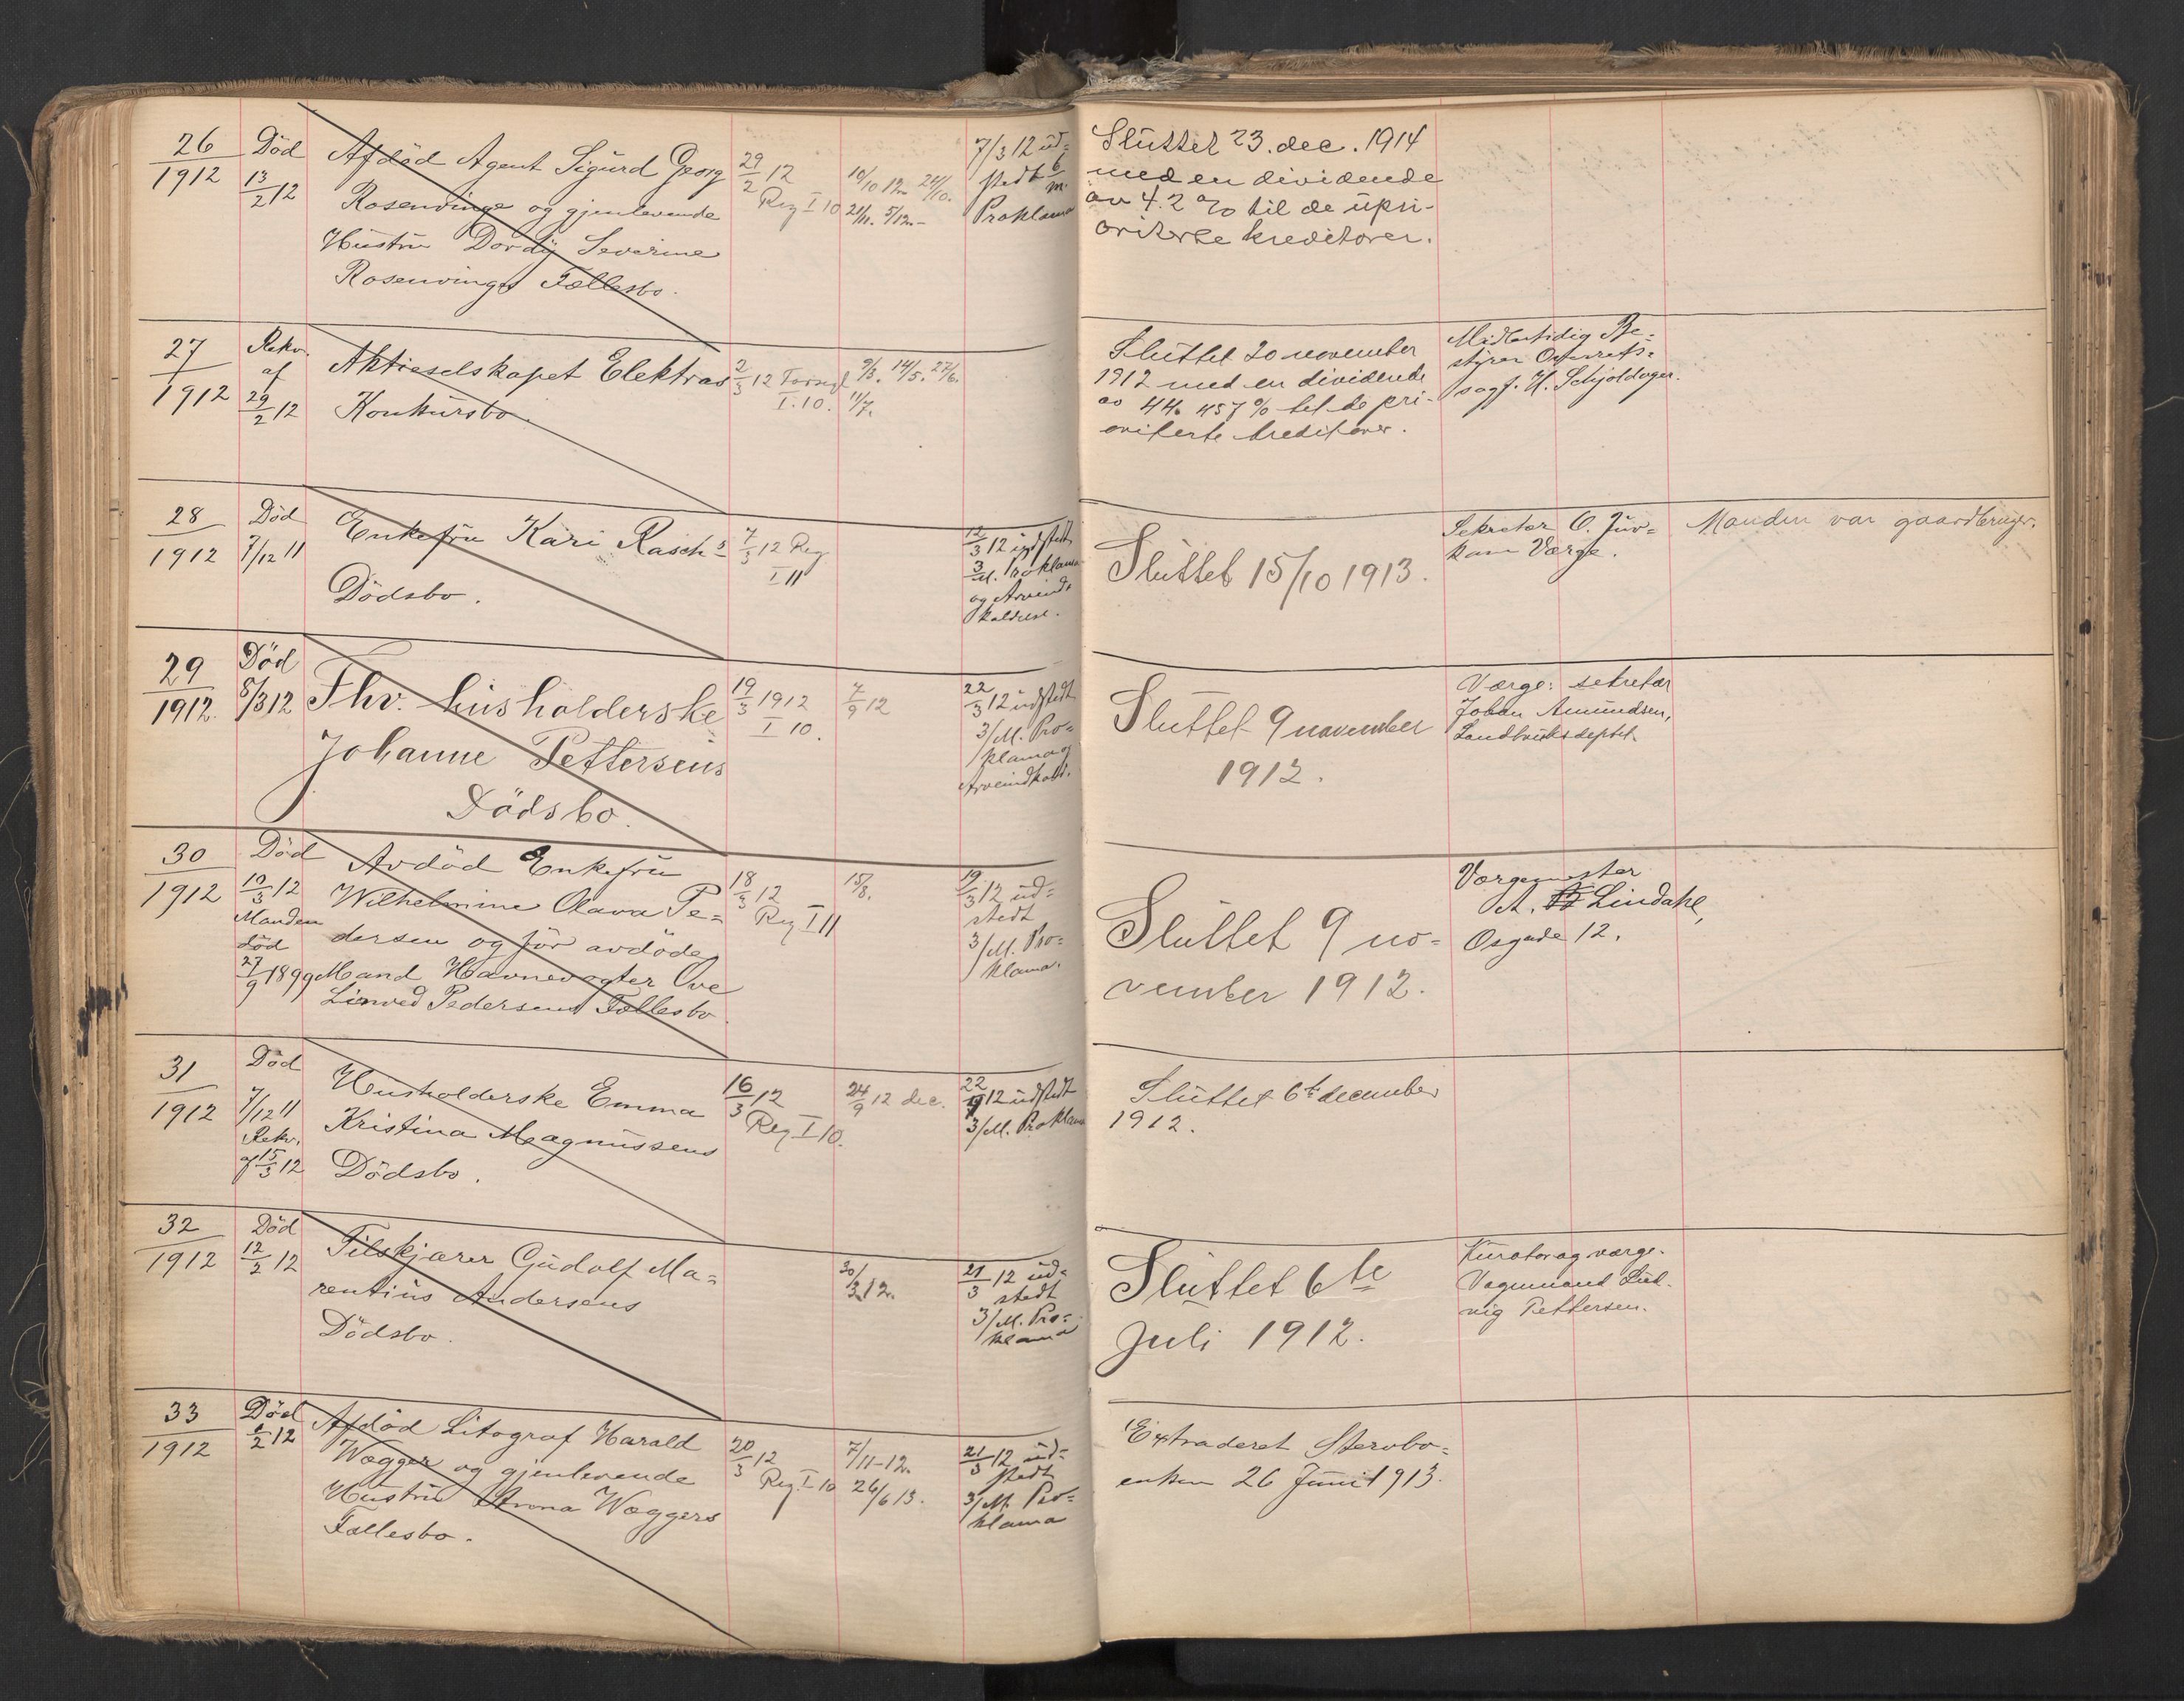 26
1912
Död
13/2 12
Afdöd Agent Sigurd Georg
Rosenvinge og gjenlevende
Hustru Dordy Severine
Rosenvinges Fællesbo.
29/2 12
Reg I 10
10/10 12 24/10.
21/11. 5/12.-
7/3 12 üd=
stedt 6/m.
Proklama
Slüttet 23. dec. 1914
med en dividende
av 4.2 % til de üpri-
oriterte kreditorer.
27
1912
Rekv.
af
29/2 12
Aktieselskapet Elektras
Konkürsbo.
2/3 12 Forsegl
I. 10.
9/3. 14/5. 27/6.
11/7.
Slüttet 20 november
1912 med en dividende
av 44.457 % til de pri-
oriterte kreditorer.
Midlertidig Be-
styrer Overrets-
sagf. H. Schjoldager.
28
1912
Död
7/12 11
Enkefrü Kari Rasch's
Dödsbo.
7/3 12 Reg
I 11
12/3 12 üdstedt
3/M. Proklama
og Arveind-
kaldelse.
Slüttet 15/10 1913.
Sekretær O. Jüv=
kam Værge.
Manden var gaardbruger.
29
1912.
Död
5/3 12
Fhv. hüsholderske
Johanne Pettersens
Dödsbo.
19/3 1912
I 10.
7/9 12
22/3 12 üdstedt
3/M. Pro=
klama og
Arveindkald.
Slüttet 9 november
1912.
Værge: sekretær
Johan Amündsen,
Landbruksdeptet.
30
1912
Död
10/3 12
Manden
död
27/9 1899
Avdöd Enkefrü
Wilhelmine Olava Pe=
dersen og för avdöde
Mand Havnevogter Ove
Linved Pedersens Fællesbo.
18/3 12
Reg I 11
15/8.
19/3 12 üd=
stedt
3/M. Pro=
klama.
Slüttet 9 no=
vember 1912.
Værgemester
A. Lindahl,
Osgade 12.
31
1912
Död
7/12 11
Rekv.
af 15/3 12
Husholderske Emma
Kristina Magnüssens
Dödsbo.
16/3 12
Reg I 10.
24/9 12 dec.
22/3 12 üdstedt
3/M. Proklama
Slüttet 6te december
1912.
32
1912
Död
12/2 12
Tilskjærer Güdolf Ma=
rentius Andersens
Dödsbo.
30/3 12.
21/3 12 üd=
stedt
3/M. Pro=
klama
Slüttet 6te
Juli 1912.
Kurator og værge.
Vognmand Lüd-
vig Pettersen.
33
1912
Död
2 12
Afdöd Litograf Harald
Wægger og gjenlevende
Hustrü Anna Wæggers
Fællesbo.
20/3 12
Reg. I 10
7/11-12.
26/6 13.
21/3 12 üd=
stedt
3/M. Pro=
klama
Extraderet Stervbo=
enken 26 Juni 1913.